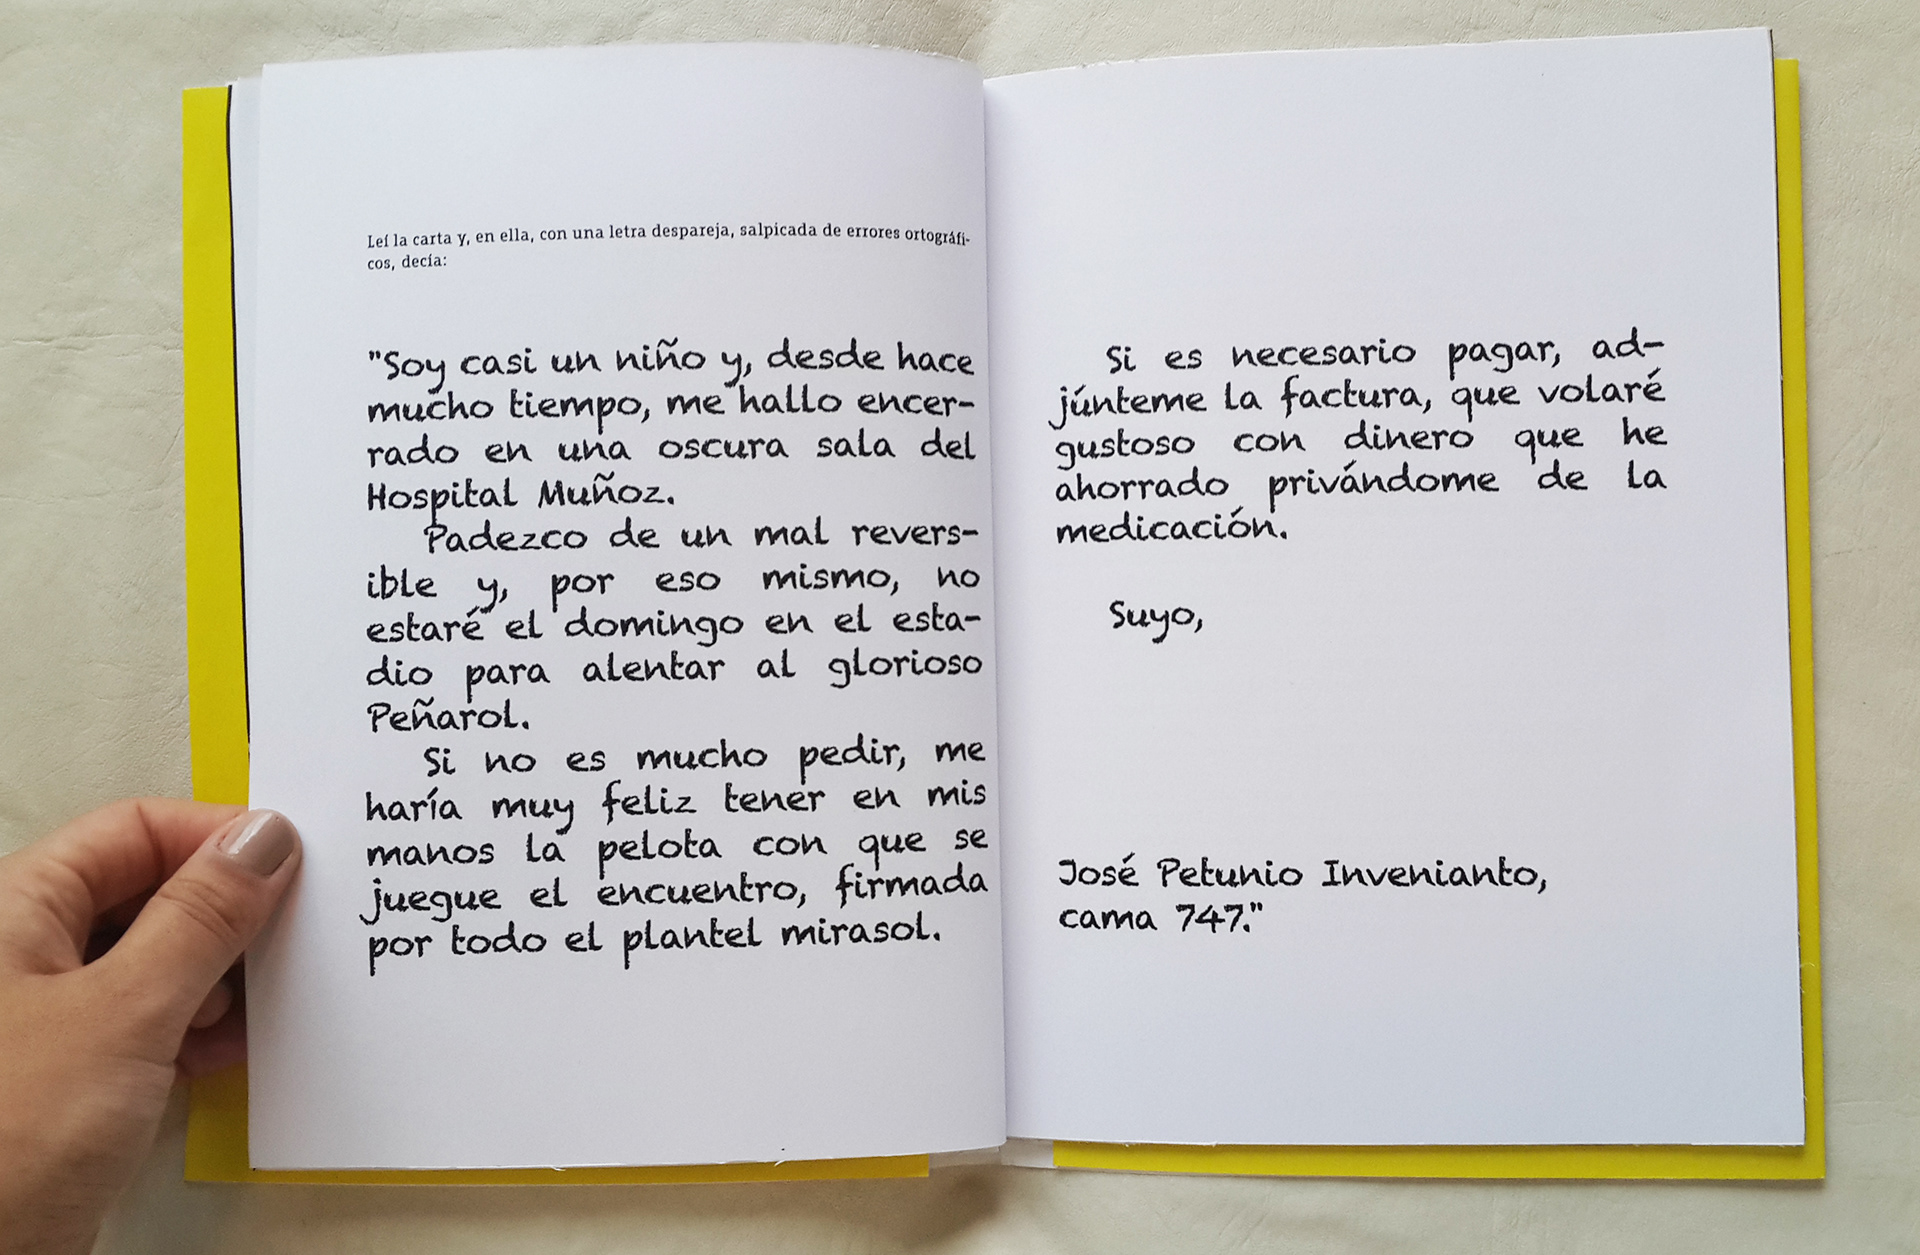 Leí la carta y, en ella, con una letra despareja, salpicada de errores ortográfi-
cos, decía:
"Soy casi un niño y, desde hace
mucho tiempo, me hallo encer-
rado en una oscura sala del
Hospital Muñoz.
Padezco de un mal revers-
ible y, por eso mismo, no
estaré el domingo en el esta-
dio para alentar al glorioso
Peñarol.
Si no es mucho pedir, me
haría muy feliz tener en mis
manos la pelota con que se
juegue el encuentro, firmada
por todo el plantel mirasol.
Si es necesario pagar, ad-
júnteme la factura, que volaré
gustoso con dinero que he
ahorrado privándome de la
medicación.
Suyo,
José Petunio Invenianto,
cama 747."